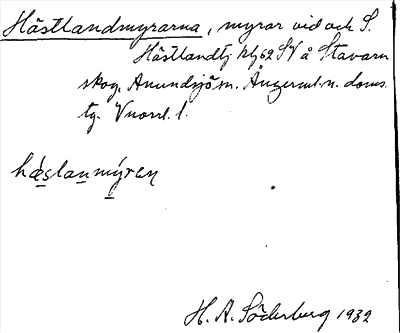 Hästlandmyrarna, myrar vid och S.
Hästlandtj. klj 62 SV å Stavarn
skog, Anundsjö sn. Ångerml. n. doms.
tg. Vnorrl. l.
hǽslanmýren
H. A. Söderberg 1932